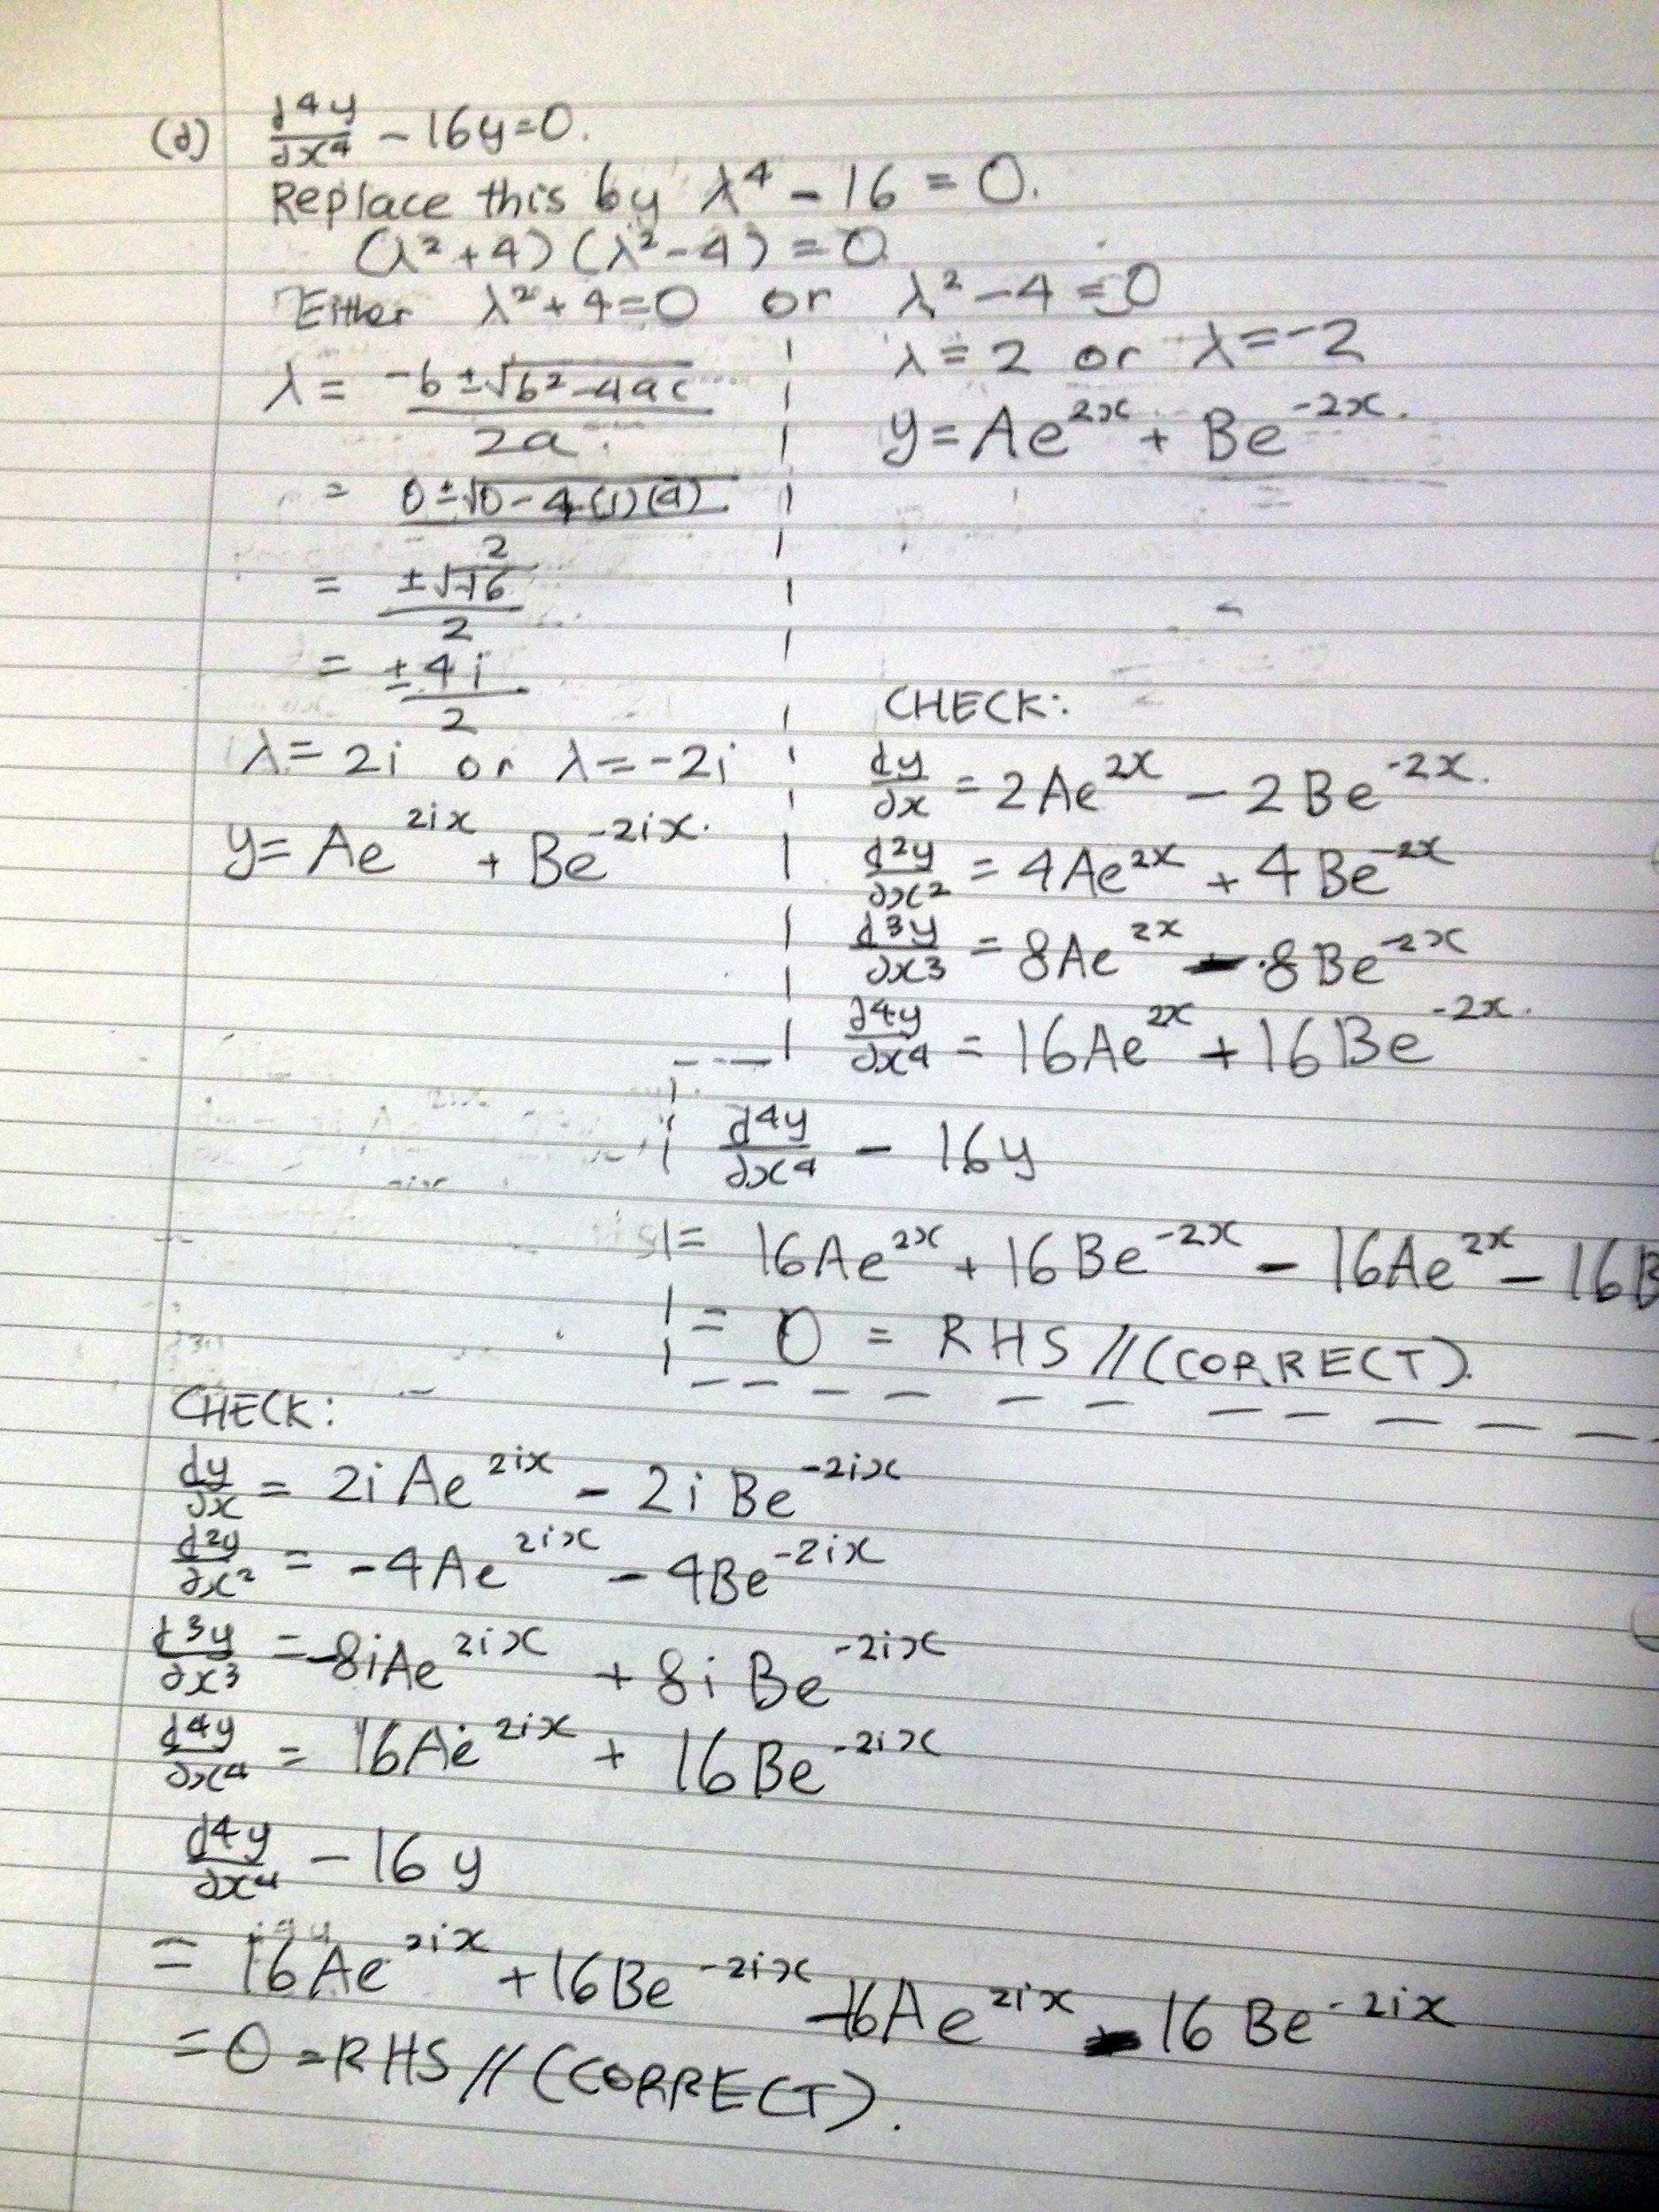 (d) d⁴y/dx⁴ - 16y=0.
Replace this by λ⁴ - 16 = 0.
(λ²+4)(λ²-4)=0
Either λ²+4=0 or λ²-4=0
λ = (-b±√(b²-4ac))/2a
= (0±√(0-4(1)(4)))/2
= ±√-16/2
= ±4i/2
λ=2i or λ=-2i
y=Ae^(2ix) + Be^(-2ix).
λ=2 or λ=-2
y=Ae^(2x) + Be^(-2x).
CHECK:
dy/dx = 2Ae^(2x) - 2Be^(-2x).
d²y/dx² = 4Ae^(2x) + 4Be^(-2x)
d³y/dx³ = 8Ae^(2x) - 8Be^(-2x)
d⁴y/dx⁴ = 16Ae^(2x) + 16Be^(-2x).
d⁴y/dx⁴ - 16y
= 16Ae^(2x) + 16Be^(-2x) - 16Ae^(2x) - 16B
= 0 = RHS //(CORRECT).
CHECK:
dy/dx = 2iAe^(2ix) - 2iBe^(-2ix)
d²y/dx² = -4Ae^(2ix) - 4Be^(-2ix)
d³y/dx³ = -8iAe^(2ix) + 8iBe^(-2ix)
d⁴y/dx⁴ = 16Ae^(2ix) + 16Be^(-2ix)
d⁴y/dx⁴ - 16y
= 16Ae^(2ix) + 16Be^(-2ix) - 16Ae^(2ix) - 16Be^(-2ix)
= 0 = RHS // (CORRECT).